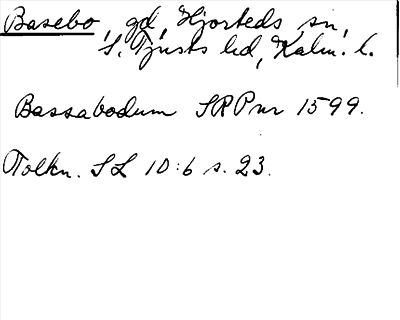 Basebo, gd, Hjorteds sn,
S. Tjusts hd, Kalm. l.
Bassabodum SRP nr 1599.
Tolkn. SL 10:6 s. 23.